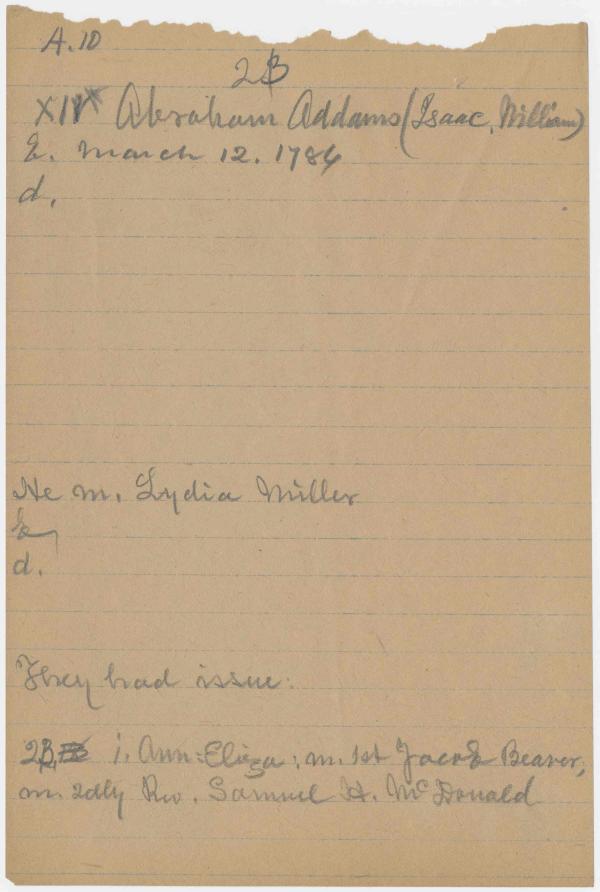 A.10
2B
XIV Abraham Addams (Isaac, William)
b. March 12. 1784
d.
He m. Lydia Miller
b
d.
They had issue:
2B i. Ann-Eliza; m. 1st Jacob Beaver,
m. 2dly Rev. Samuel H. McDonald